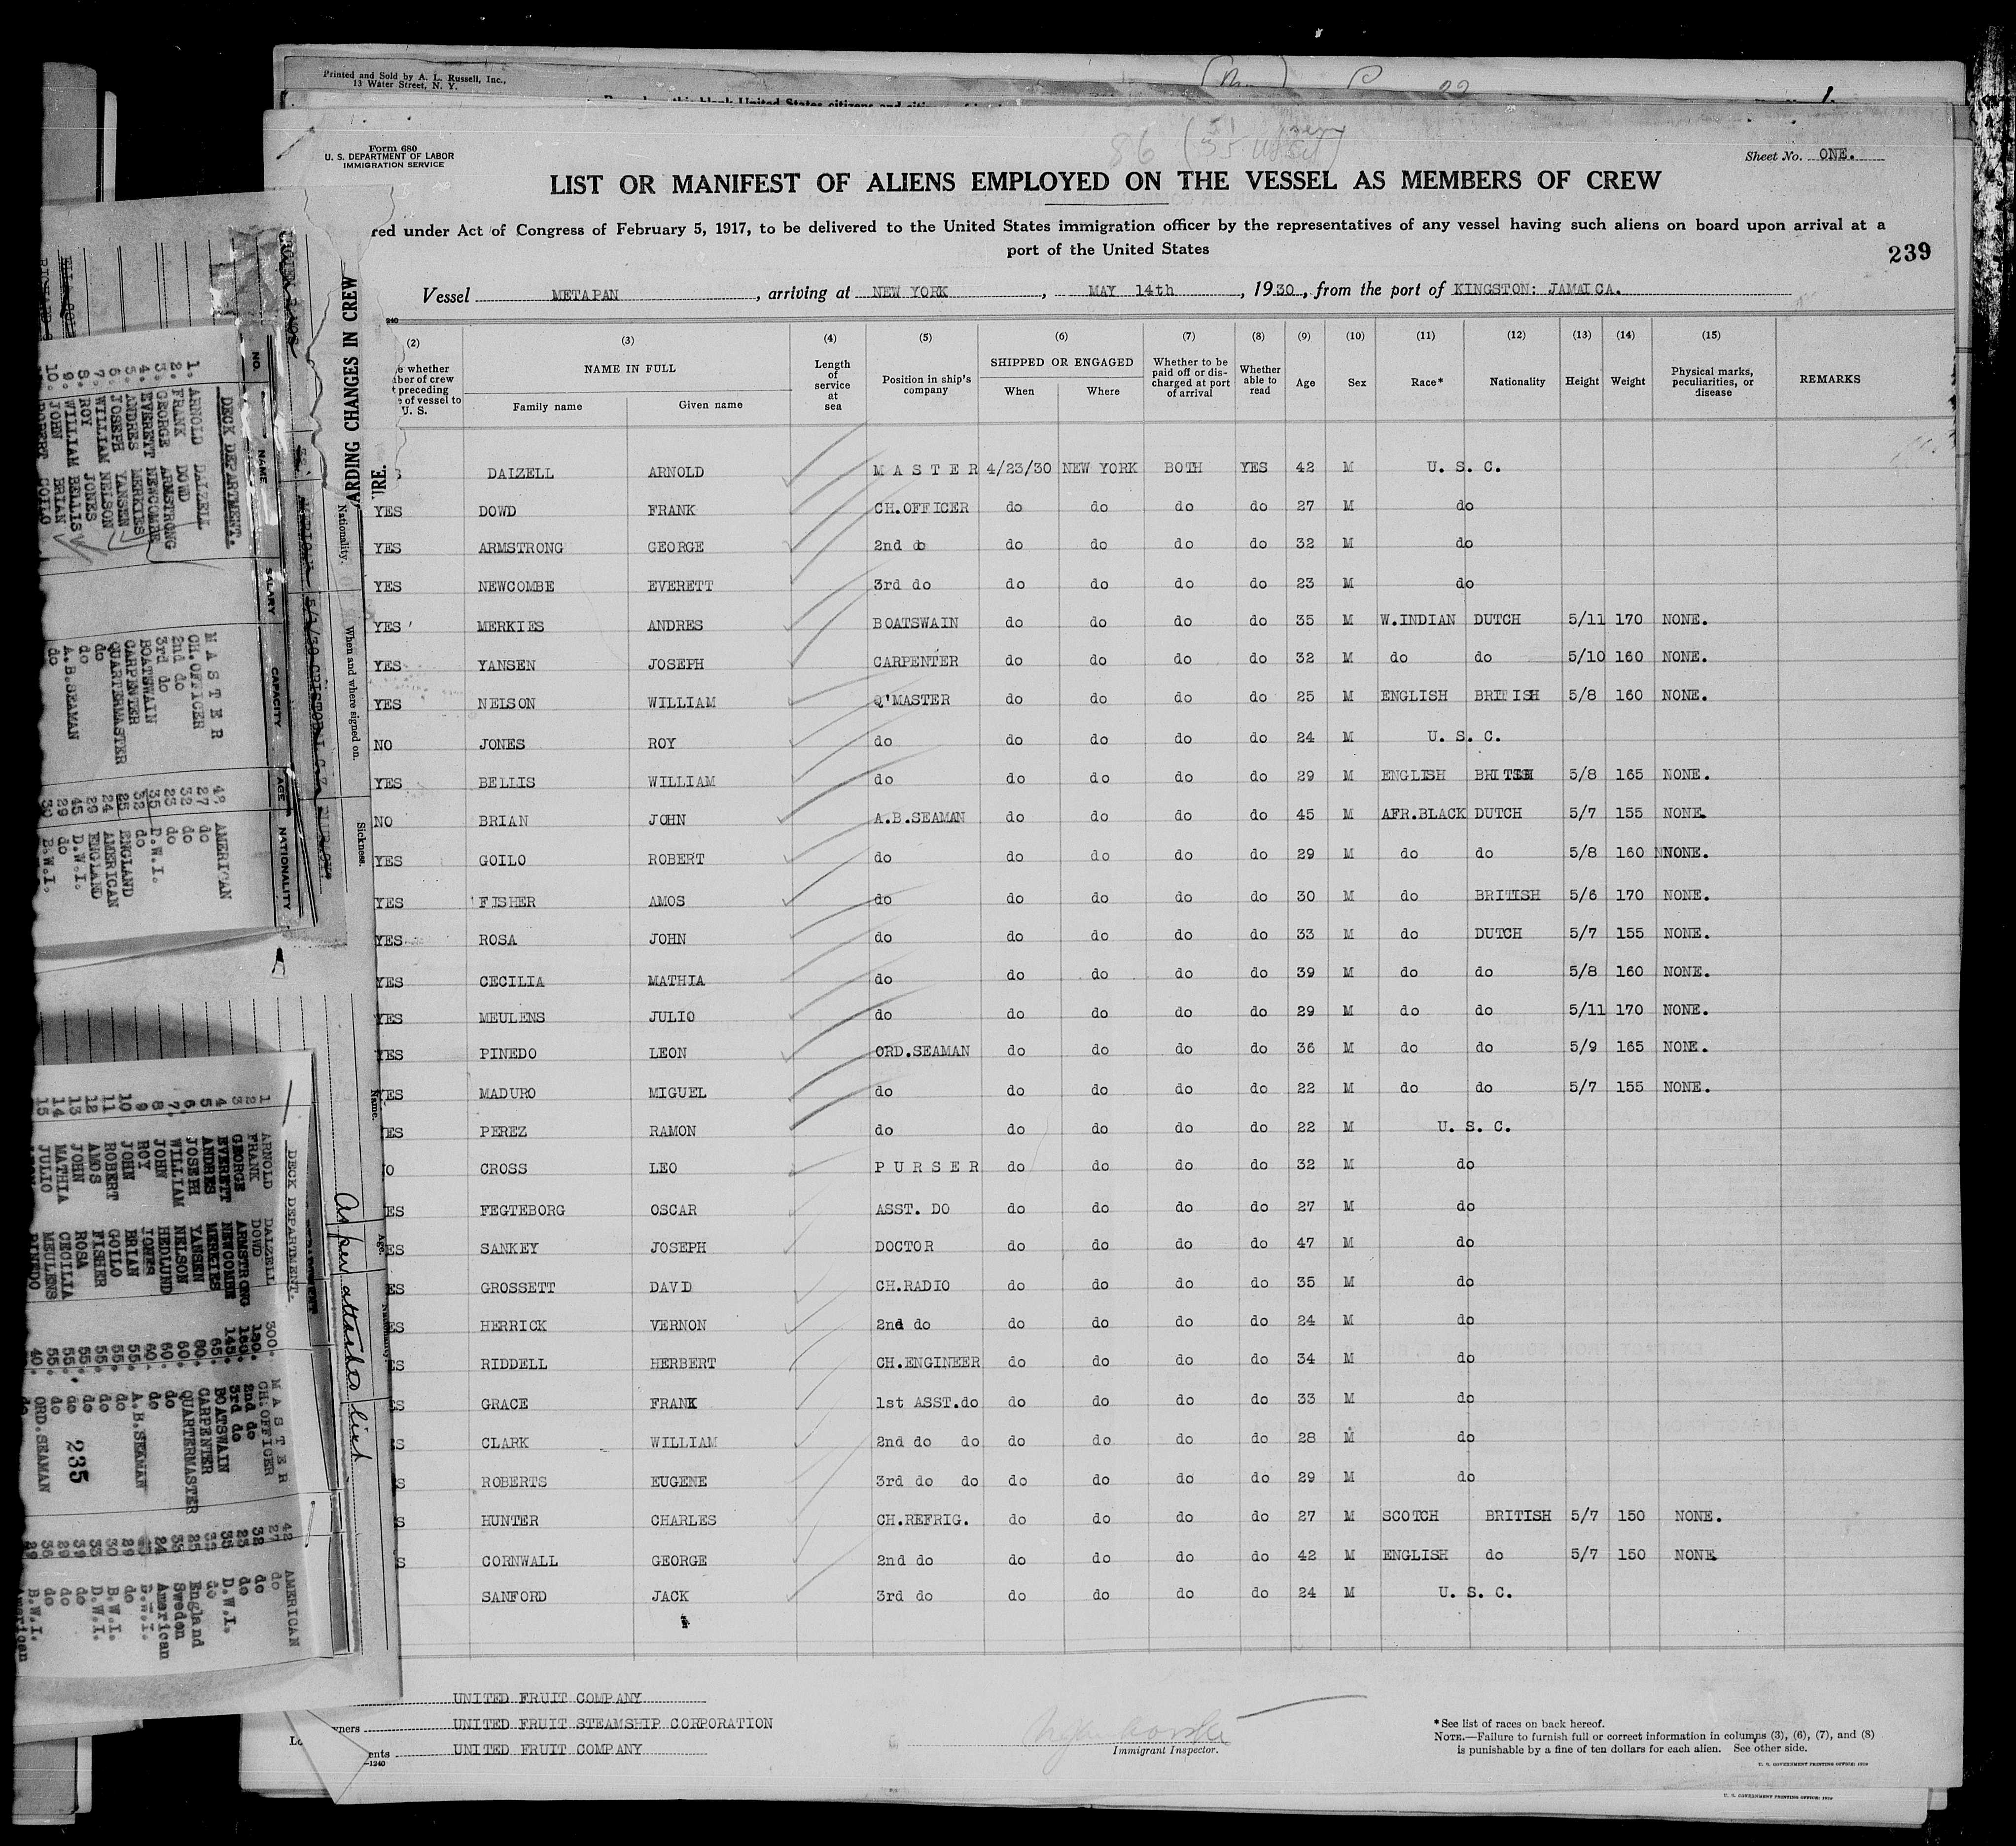 Printed and Sold by A. L. Russell, Inc.,
13 Water Street, N. Y.
Form 680
U. S. DEPARTMENT OF LABOR
IMMIGRATION SERVICE
86
Sheet No. ONE.
LIST OR MANIFEST OF ALIENS EMPLOYED ON THE VESSEL AS MEMBERS OF CREW
red under Act of Congress of February 5, 1917, to be delivered to the United States immigration officer by the representatives of any vessel having such aliens on board upon arrival at a
port of the United States
239
Vessel METAPAN, arriving at NEW YORK, MAY 14th, 1930, from the port of KINGSTON: JAMAICA.
(2) (3) (4) (5) (6) (7) (8) (9) (10) (11) (12) (13) (14) (15)
e whether
ber of crew
preceding
e of vessel to
U. S.
NAME IN FULL
Family name Given name
Length of service at sea
Position in ship's company
SHIPPED OR ENGAGED
When Where
Whether to be paid off or discharged at port of arrival
Whether able to read
Age Sex Race* Nationality Height Weight
Physical marks, peculiarities, or disease
REMARKS
S DALZELL ARNOLD M A S T E R 4/23/30 NEW YORK BOTH YES 42 M U. S. C.
YES DOWD FRANK CH.OFFICER do do do do 27 M do
YES ARMSTRONG GEORGE 2nd do do do do do 32 M do
YES NEWCOMBE EVERETT 3rd do do do do do 23 M do
YES MERKIES ANDRES BOATSWAIN do do do do 35 M W.INDIAN DUTCH 5/11 170 NONE.
YES YANSEN JOSEPH CARPENTER do do do do 32 M do do 5/10 160 NONE.
YES NELSON WILLIAM Q'MASTER do do do do 25 M ENGLISH BRITISH 5/8 160 NONE.
NO JONES ROY do do do do do 24 M U. S. C.
YES BELLIS WILLIAM do do do do do 29 M ENGLISH BRITISH 5/8 165 NONE.
NO BRIAN JOHN A.B.SEAMAN do do do do 45 M AFR.BLACK DUTCH 5/7 155 NONE.
YES GOILO ROBERT do do do do do 29 M do do 5/8 160 NONE.
YES FISHER AMOS do do do do do 30 M do BRITISH 5/6 170 NONE.
YES ROSA JOHN do do do do do 33 M do DUTCH 5/7 155 NONE.
YES CECILIA MATHIA do do do do do 39 M do do 5/8 160 NONE.
YES MEULENS JULIO do do do do do 29 M do do 5/11 170 NONE.
YES PINEDO LEON ORD.SEAMAN do do do do 36 M do do 5/9 165 NONE.
YES MADURO MIGUEL do do do do do 22 M do do 5/7 155 NONE.
ES PEREZ RAMON do do do do do 22 M U. S. C.
O CROSS LEO P U R S E R do do do do 32 M do
ES FEGTEBORG OSCAR ASST. DO do do do do 27 M do
ES SANKEY JOSEPH DOCTOR do do do do 47 M do
ES GROSSETT DAVD CH.RADIO do do do do 35 M do
ES HERRICK VERNON 2nd do do do do do 24 M do
ES RIDDELL HERBERT CH.ENGINEER do do do do 34 M do
ES GRACE FRANK 1st ASST.do do do do do 33 M do
S CLARK WILLIAM 2nd do do do do do do 28 M do
S ROBERTS EUGENE 3rd do do do do do do 29 M do
S HUNTER CHARLES CH.REFRIG. do do do do 27 M SCOTCH BRITISH 5/7 150 NONE.
S CORNWALL GEORGE 2nd do do do do do 42 M ENGLISH do 5/7 150 NONE
SANFORD JACK 3rd do do do do do 24 M U. S. C.
UNITED FRUIT COMPANY
wners UNITED FRUIT STEAMSHIP CORPORATION
ents UNITED FRUIT COMPANY
—1240
Immigrant Inspector.
*See list of races on back hereof.
NOTE.—Failure to furnish full or correct information in columns (3), (6), (7), and (8)
is punishable by a fine of ten dollars for each alien. See other side.
U. S. GOVERNMENT PRINTING OFFICE: 1929
ARDING CHANGES IN CREW
URE.
Nationality.
When and where signed on.
Sickness.
Name.
Age.
As per attached list
NO. NAME SALARY CAPACITY AGE NATIONALITY
DECK DEPARTMENT.
1. ARNOLD DALZELL M A S T E R 42 AMERICAN
2. FRANK DOWD CH.OFFICER 27 do
3. GEORGE ARMSTRONG 2nd do 32 do
4. EVERETT NEWCOMBE 3rd do 23 do
5. ANDRES MERKIES BOATSWAIN 35 D.W.I.
6. JOSEPH YANSEN CARPENTER 32 do
7. WILLIAM NELSON QUARTERMASTER 25 ENGLAND
8. ROY JONES do 24 AMERICAN
9. WILLIAM BELLIS do 29 ENGLAND
10. JOHN BRIAN A.B.SEAMAN 45 D.W.I.
ROBERT GOILO do 29 do
DECK DEPARTMENT.
1 ARNOLD DALZELL 300. M A S T E R 42 AMERICAN
2 FRANK DOWD CH.OFFICER 27 do
3 GEORGE ARMSTRONG 2nd do 32 do
4 EVERETT NEWCOMBE 145. 3rd do
5 ANDRES MERKIES 65. BOATSWAIN 35 D.W.I.
6 JOSEPH YANSEN 80. CARPENTER do
7. WILLIAM NELSON 60. QUARTERMASTER 25 England
8 JOHN HEDLUND 60. do 35 Sweden
9 ROY JONES 60. do 24 American
10 JOHN BRIAN 55. A.B.SEAMAN D.W.I.
11 ROBERT GOILO 55. do 29 do
12 AMOS FISHER 55. do 30 B.W.I.
13 JOHN ROSA 55. do D.W.I.
14 MATHIA CECILIA 55. do 39 do
15 JULIO MEULENS 55. do 29 do
PINEDO 40. ORD.SEAMAN 36 do
235